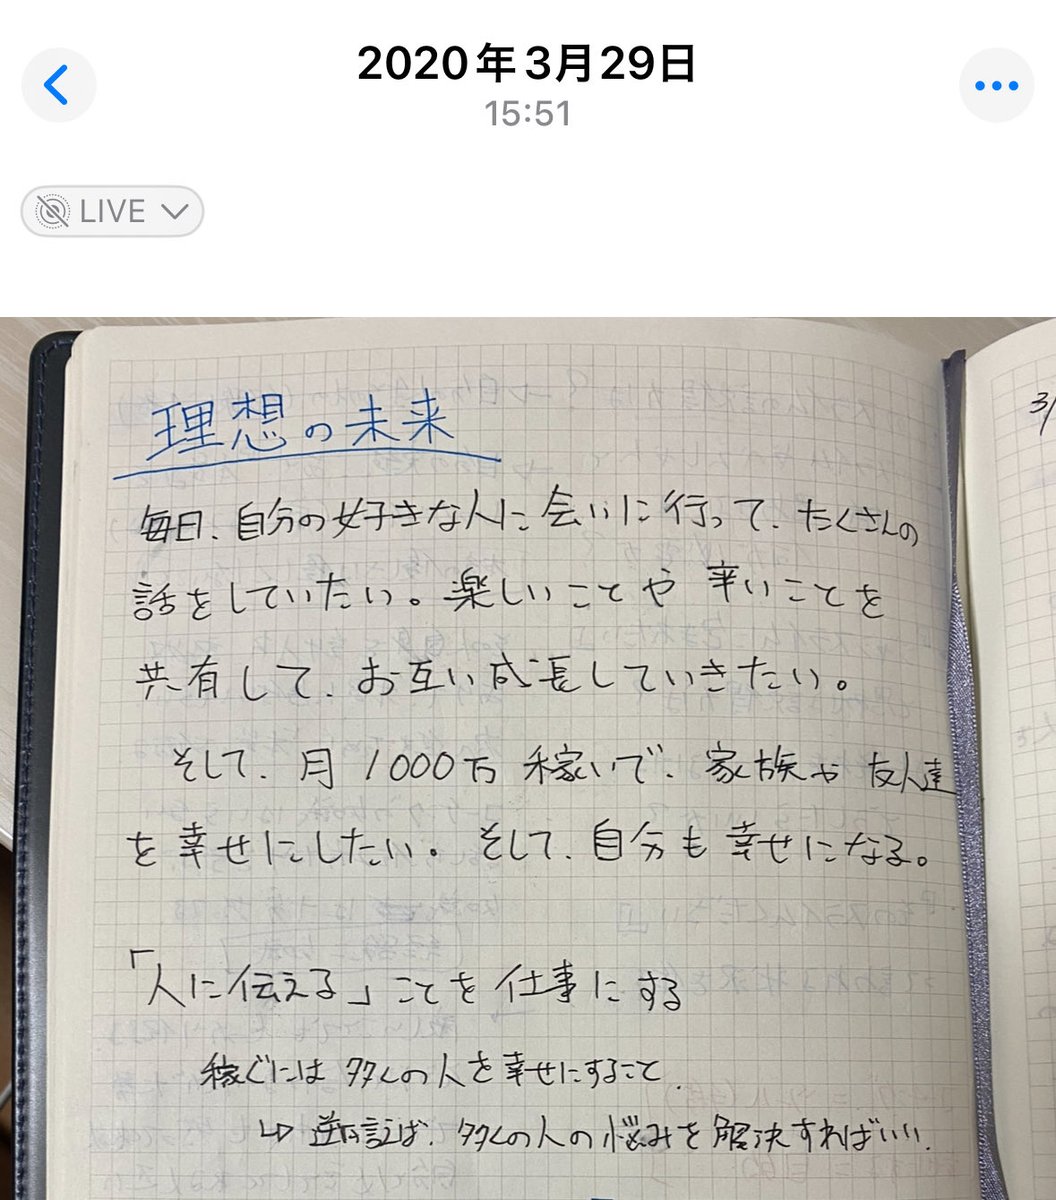 2020年3月29日
15:51
LIVE
3/
理想の未来
毎日、自分の好きな人に会いに行って、たくさんの
話をしていたい。楽しいことや辛いことを
共有して、お互い成長していきたい。
そして、月1000万稼いで、家族や友人達
を幸せにしたい。そして、自分も幸せになる。
「人に伝える」ことを仕事にする
稼ぐには多くの人を幸せにすること、
↳ 逆に言えば、多くの人の悩みを解決すればいい。